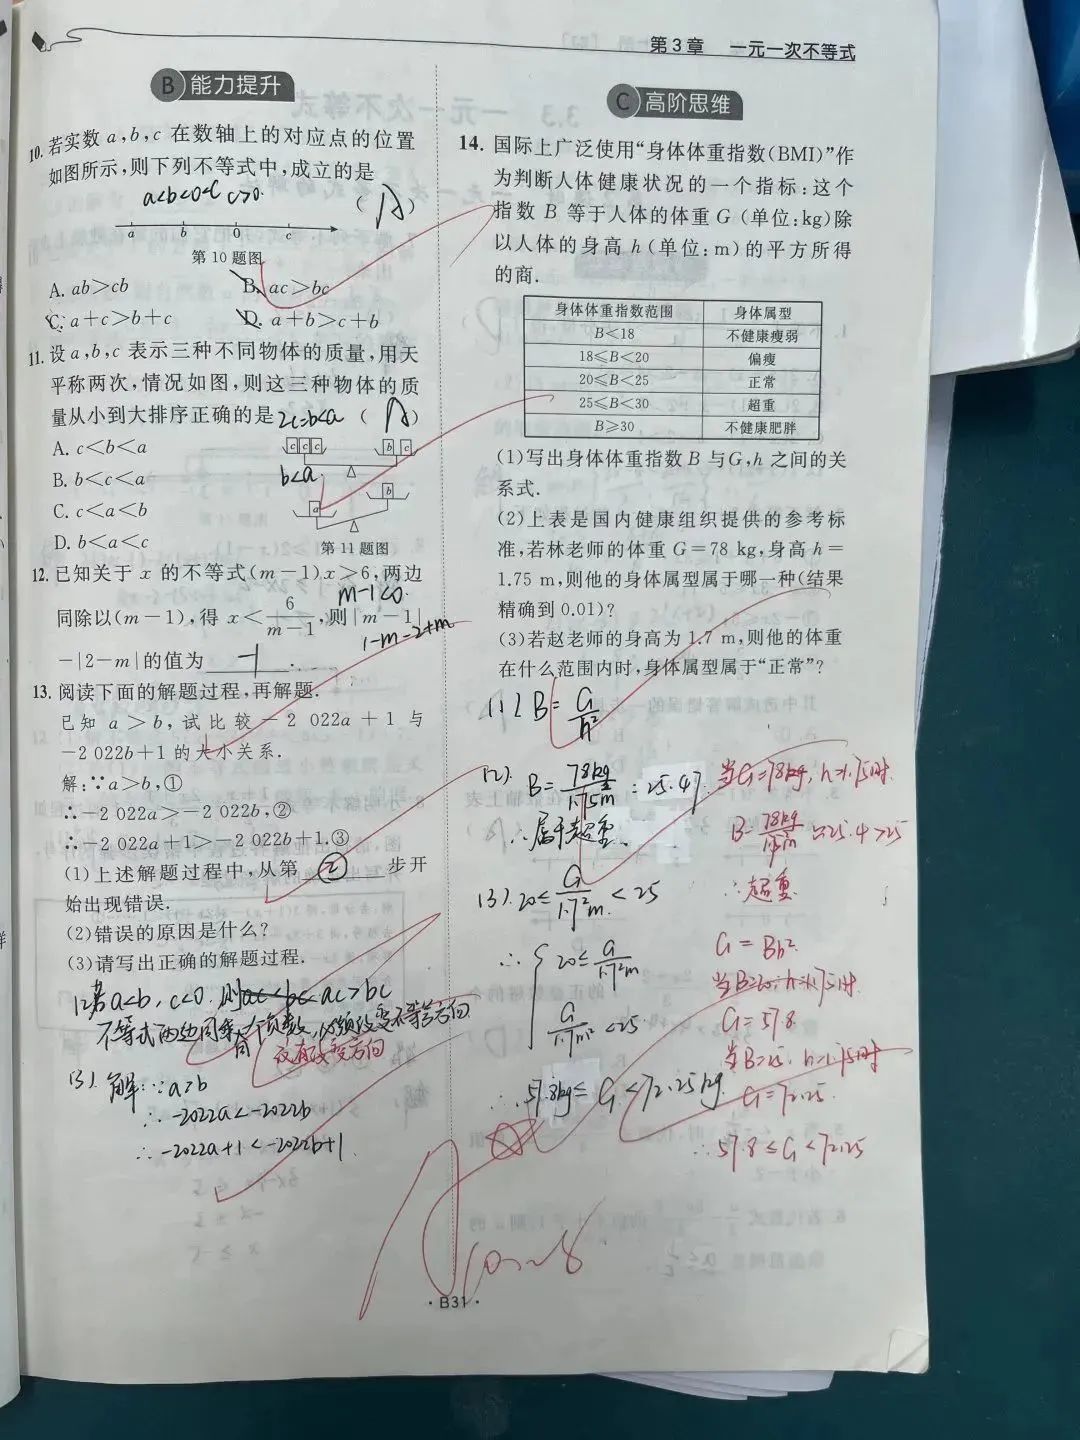 第3章 一元一次不等式
B 能力提升
10. 若实数 a,b,c 在数轴上的对应点的位置
如图所示,则下列不等式中,成立的是
a<b<0<c c>0.
( A )
a b 0 c
第10题图
A. ab>cb B. ac>bc
C. a+c>b+c D. a+b>c+b
11. 设 a,b,c 表示三种不同物体的质量,用天
平称两次,情况如图,则这三种物体的质
量从小到大排序正确的是 2c=b<a ( A )
A. c<b<a
c c c b c
B. b<c<a
b<a
b
C. c<a<b
a
D. b<a<c
第11题图
12. 已知关于 x 的不等式(m-1)x>6,两边
m-1<0.
同除以(m-1),得 x<6/(m-1),则|m-1|
1-m-2+m
-|2-m|的值为 -1 .
13. 阅读下面的解题过程,再解题.
已知 a>b,试比较-2 022a+1与
-2 022b+1的大小关系.
解:∵a>b,①
∴-2 022a>-2 022b,②
∴-2 022a+1>-2 022b+1.③
(1)上述解题过程中,从第 ② 步开
始出现错误.
(2)错误的原因是什么?
(3)请写出正确的解题过程.
(2)若a<b,c<0.则ac<bc ac>bc
不等式两边同乘
负数,必须改变不等号方向
没有改变方向
(3). 解:∵a>b
∴-2022a<-2022b
∴-2022a+1<-2022b+1.
C 高阶思维
14. 国际上广泛使用“身体体重指数(BMI)”作
为判断人体健康状况的一个指标:这个
指数 B 等于人体的体重 G(单位:kg)除
以人体的身高 h(单位:m)的平方所得
的商.
身体体重指数范围 身体属型
B<18 不健康瘦弱
18≤B<20 偏瘦
20≤B<25 正常
25≤B<30 超重
B≥30 不健康肥胖
(1)写出身体体重指数 B 与G,h 之间的关
系式.
(2)上表是国内健康组织提供的参考标
准,若林老师的体重 G=78 kg,身高 h=
1.75 m,则他的身体属型属于哪一种(结果
精确到 0.01)?
(3)若赵老师的身高为 1.7 m,则他的体重
在什么范围内时,身体属型属于“正常”?
(1) B=G/h²
(2). B=78kg/1.75²m=25.47.
∴属于超重.
(3). 20≤G/1.7²m<25
∴ 20≤G/1.7²m
G/1.7m²<25
∴57.8kg≤G<72.25kg.
当G=78kg,h=1.75时.
∴超重.
G=Bh²
G=57.8
G=72.25.
∴57.8≤G<72.25
· B31 ·